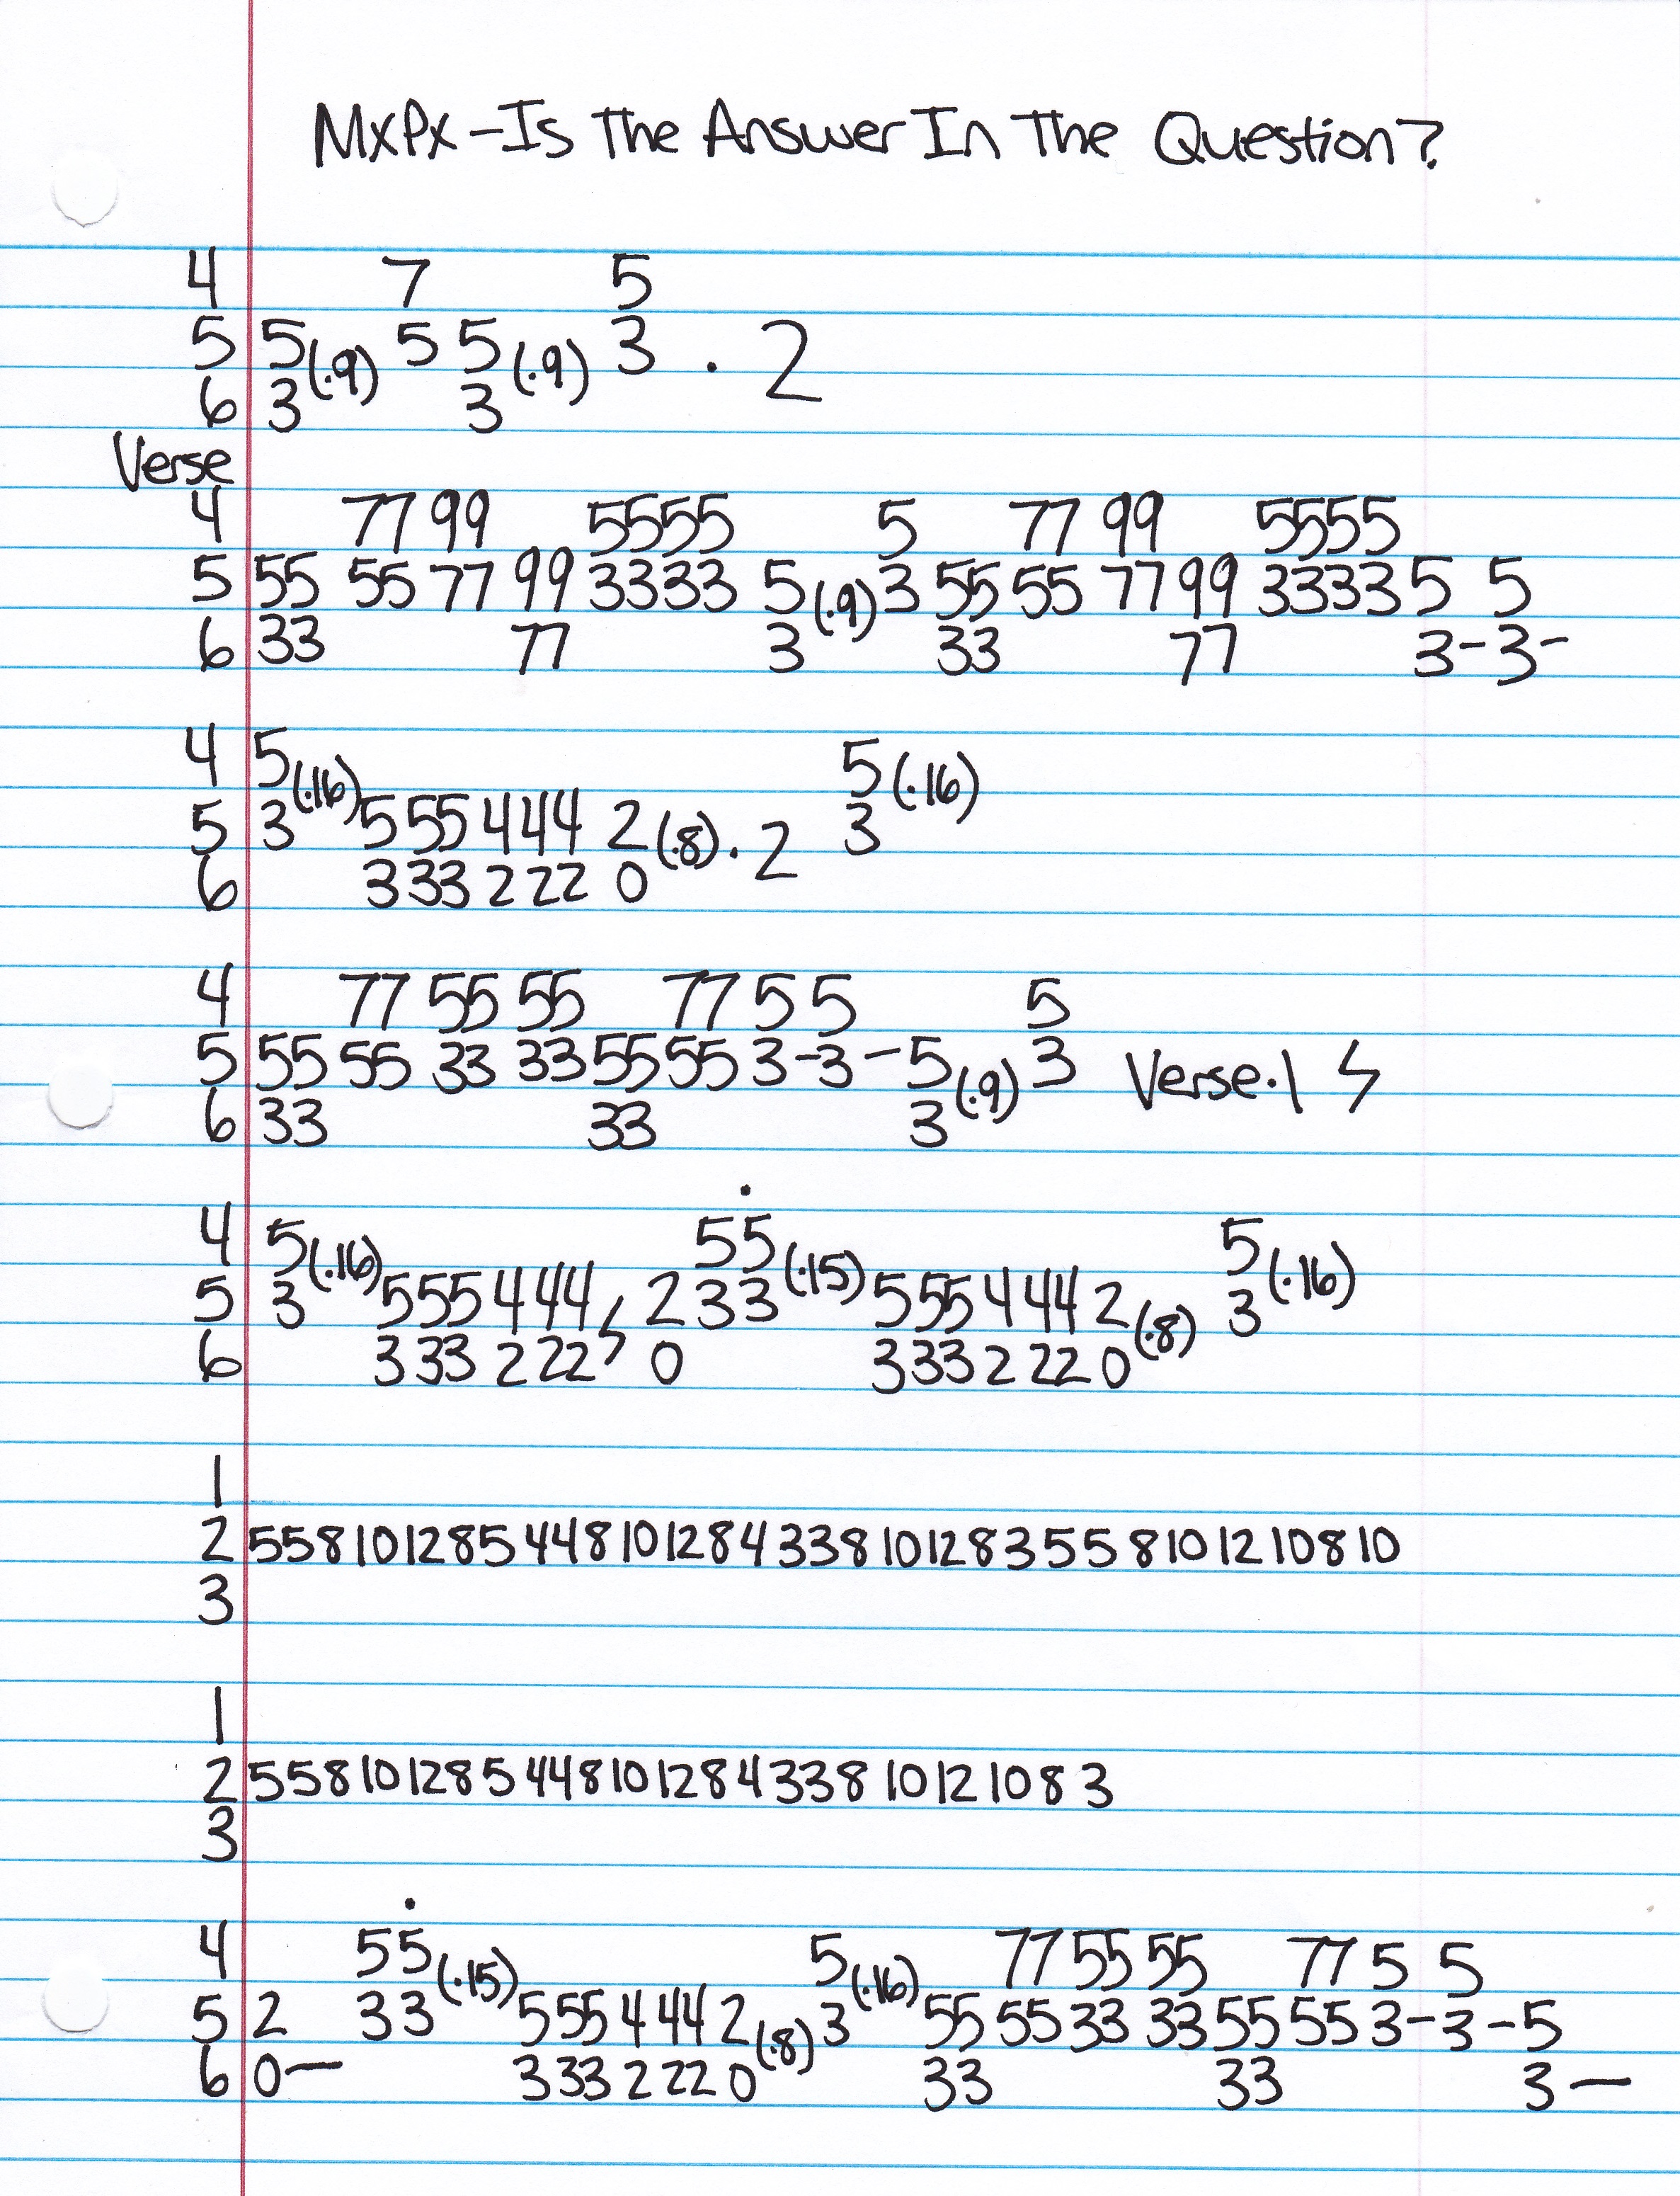 MxPx - Is The Answer In The Question?
4 7 5
5 5(.9) 5 5(.9) 3 . 2
6 3 3
Verse
4 77 99 5555 5 77 99 5555
5 55 55 77 99 3333 5(.9) 3 55 55 77 99 3333 5 5
6 33 77 3 33 77 3-3-
4 5(.16) 5(.16)
5 3 5 55 4 44 2(.8) . 2 3
6 3 33 2 22 0
4 77 55 55 77 5 5 5
5 55 55 33 33 55 55 3-3-5(.9) 3 Verse.1 ϟ
6 33 33 3
4 5(.16) 55(.15) 5(.16)
5 3 555 444 ϟ 2 33 555 444 2(.8) 3
6 333 222 0 333 222 0
1
2 5 5 8 10 12 8 5 4 4 8 10 12 8 4 3 3 8 10 12 8 3 5 5 8 10 12 10 8 10
3
1
2 5 5 8 10 12 8 5 4 4 8 10 12 8 4 3 3 8 10 12 10 8 3
3
4 55(.15) 5(.16) 77 55 55 77 5 5
5 2 33 555 444 2(.8) 3 55 55 33 33 55 55 3-3-5
6 0- 333 222 0 33 33 3-